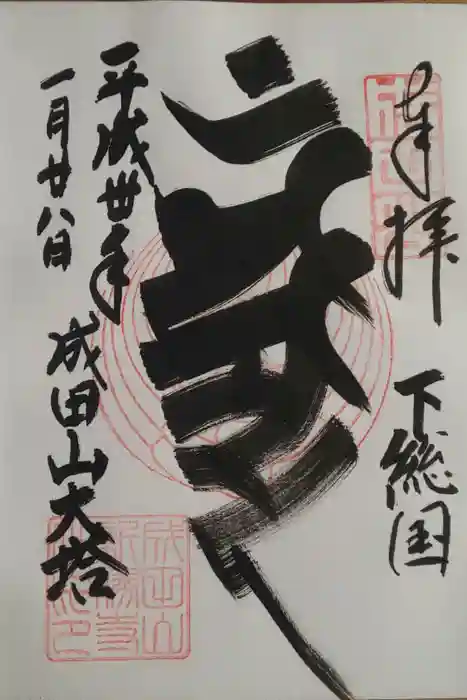 奉拝
下総国
平成卅年
一月廿八日
成田山大塔
成田山
新勝寺